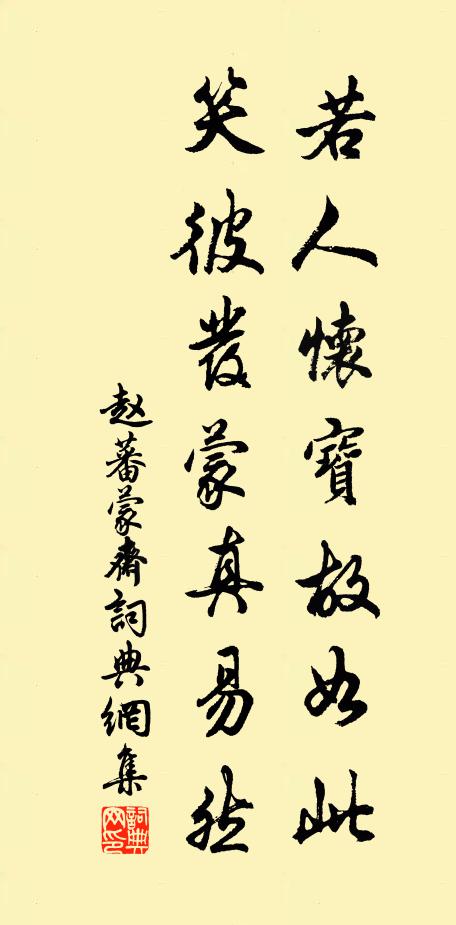 若人懷寶故如此
笑彼發蒙真易然
赵蕃蒙齋詞典網集
詞典网印